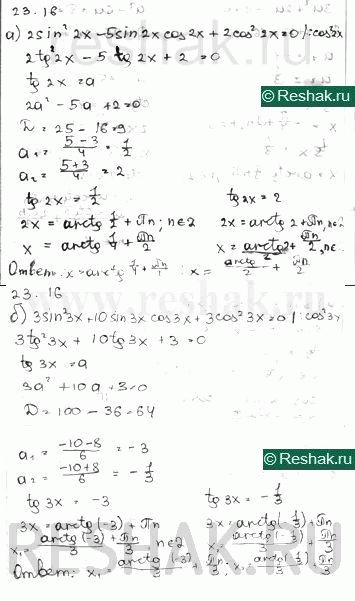 23.16
а) 2sin² 2x - 5sin 2x cos 2x + 2cos² 2x = 0 /: cos² 2x
2tg² 2x - 5 tg 2x + 2 = 0
tg 2x = a
2a² - 5a + 2 = 0
Reshak.ru
D = 25 - 16 = 9
a₁ = (5-3)/4 = 1/2
a₂ = (5+3)/4 = 2
tg 2x = 1/2 tg 2x = 2
2x = arctg 1/2 + πn; n∈Z 2x = arctg 2 + πn, n∈Z
x = arctg 1/4 + πn/2 x = arctg 2/2 + πn/2, n∈
Ответ: x = arctg 1/4 + πn/2 ; x = arctg 2/2 + πn/2
23.16
б) 3sin² 3x + 10sin 3x cos 3x + 3cos² 3x = 0 /: cos² 3x
3tg² 3x + 10tg 3x + 3 = 0
tg 3x = a
3a² + 10a + 3 = 0
D = 100 - 36 = 64
a₁ = (-10-8)/6 = -3
a₂ = (-10+8)/6 = -1/3
Reshak.ru
tg 3x = -3 tg 3x = -1/3
3x = arctg(-3) + πn 3x = arctg(-1/3) + πn
x₁ = arctg(-3)/3 + πn/3 n∈Z x₂ = arctg(-1/3)/3 + πn/3
RESHAK.RU
Ответ: x₁ = arctg(-3)/3 + πn/3 ; x₂ = arctg(-1/3)/3 + πn/3